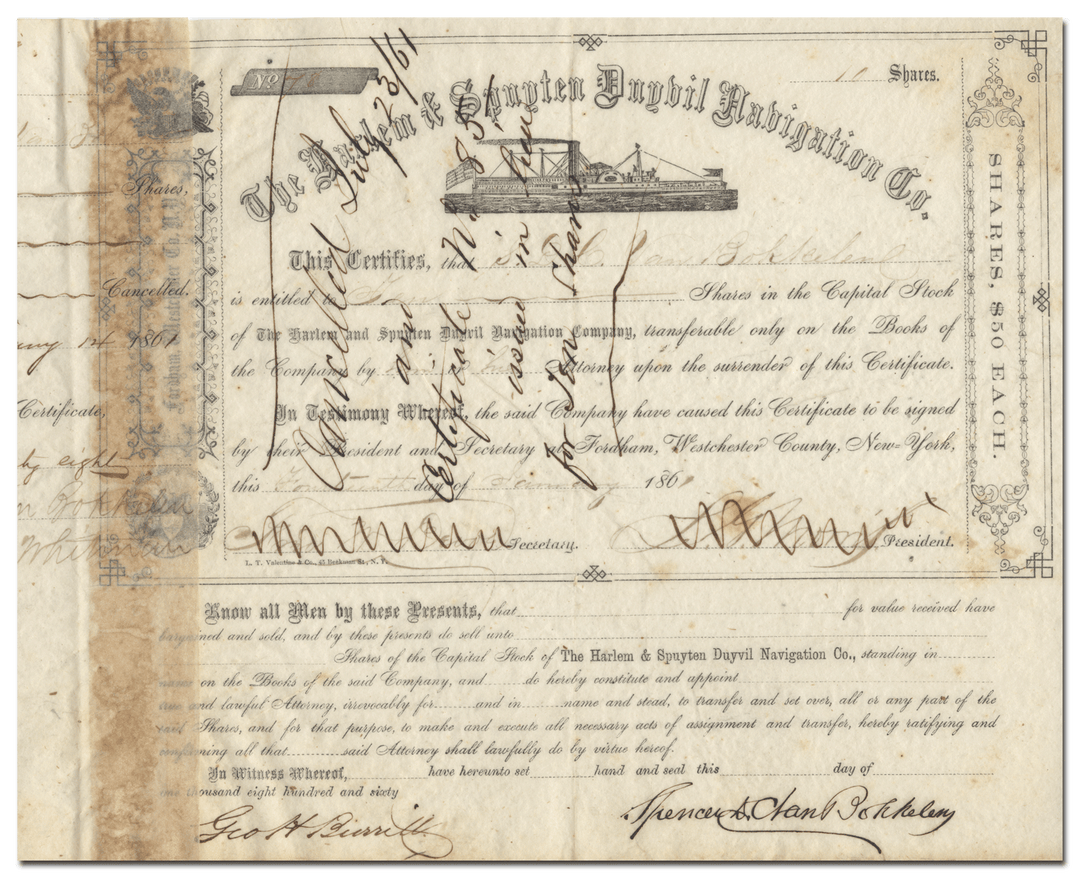 No 78
10 Shares.
The Harlem & Spuyten Duyvil Navigation Co.
This Certifies, that S. D. C. Van Bokkelen
is entitled to Shares in the Capital Stock
of The Harlem and Spuyten Duyvil Navigation Company, transferable only on the Books of
the Company by Attorney upon the surrender of this Certificate.
In Testimony Whereof, the said Company have caused this Certificate to be signed
by their President and Secretary at Fordham, Westchester County, New-York,
this Fourteenth day of January 1861
Secretary. President.
L. T. Valentine & Co., 45 N. Y.
SHARES, $50 EACH.
Cancelled July 23/61
and
Certificate No 85
issued in lieu
for Ten Shares
Shares,
Cancelled.
14 1861
Certificate,
by eight
Bokkelen
Whitman
Fordham, Westchester Co. N.Y.
Know all Men by these Presents, that for value received have
bargained and sold, and by these presents do sell unto
Shares of the Capital Stock of The Harlem & Spuyten Duyvil Navigation Co., standing in
name on the Books of the said Company, and do hereby constitute and appoint
true and lawful Attorney, irrevocably for and in name and stead, to transfer and set over, all or any part of the
said Shares, and for that purpose, to make and execute all necessary acts of assignment and transfer, hereby ratifying and
confirming all that said Attorney shall lawfully do by virtue hereof.
In Witness Whereof, have hereunto set hand and seal this day of
one thousand eight hundred and sixty
Geo H Burritt Spencer D. C. Van Bokkelen